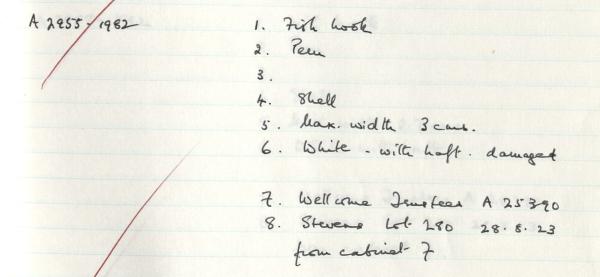 A 2955-1982 1. Fish hook
2. Peru
3.
4. Shell
5. Max. width 3 cms.
6. White - with haft. damaged
7. Wellcome Trustees A 25390
8. Stevens Lot 280 28.8.23
from cabinet 7